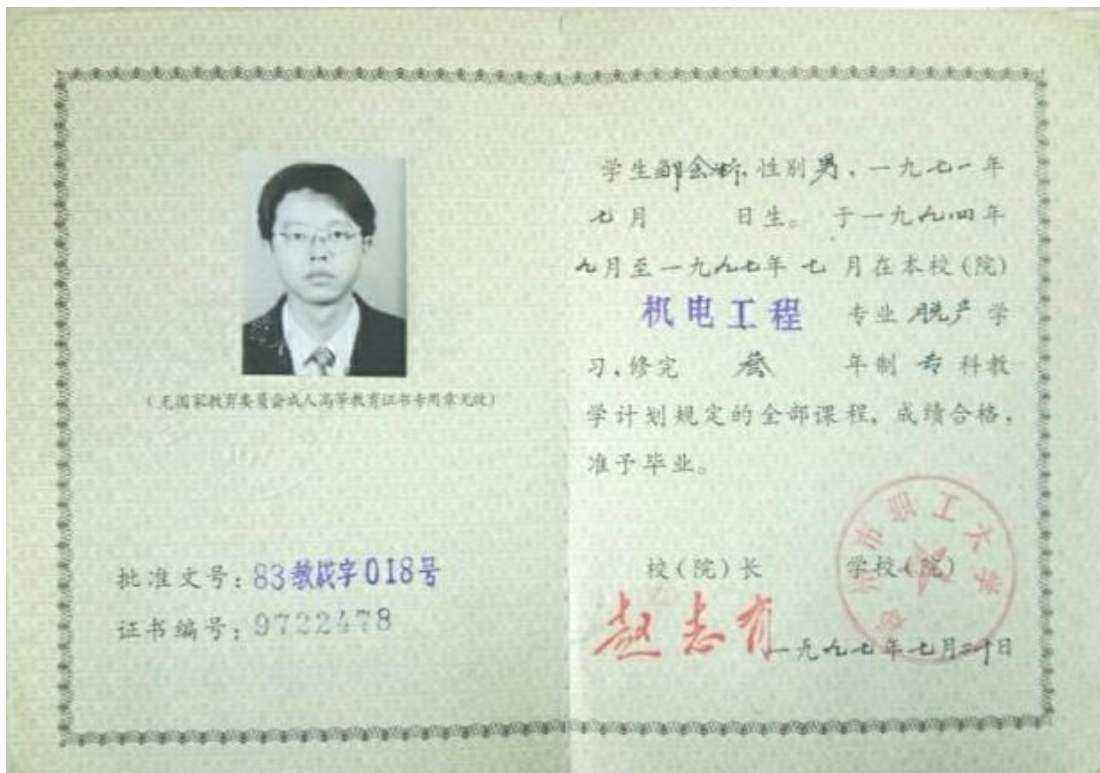 (无国家教育委员会成人高等教育证书专用章无效)
批准文号:83教成字018号
证书编号:9722478
学生邹会析,性别男,一九七一年
七月 日生。于一九九四年
九月至一九九七年 七 月在本校(院)
机电工程 专业 脱产 学
习,修完 叁 年制 专 科教
学计划规定的全部课程,成绩合格,
准予毕业。
校(院)长 学校(院)
赵志有
一九九七年七月二十日
市职工大学